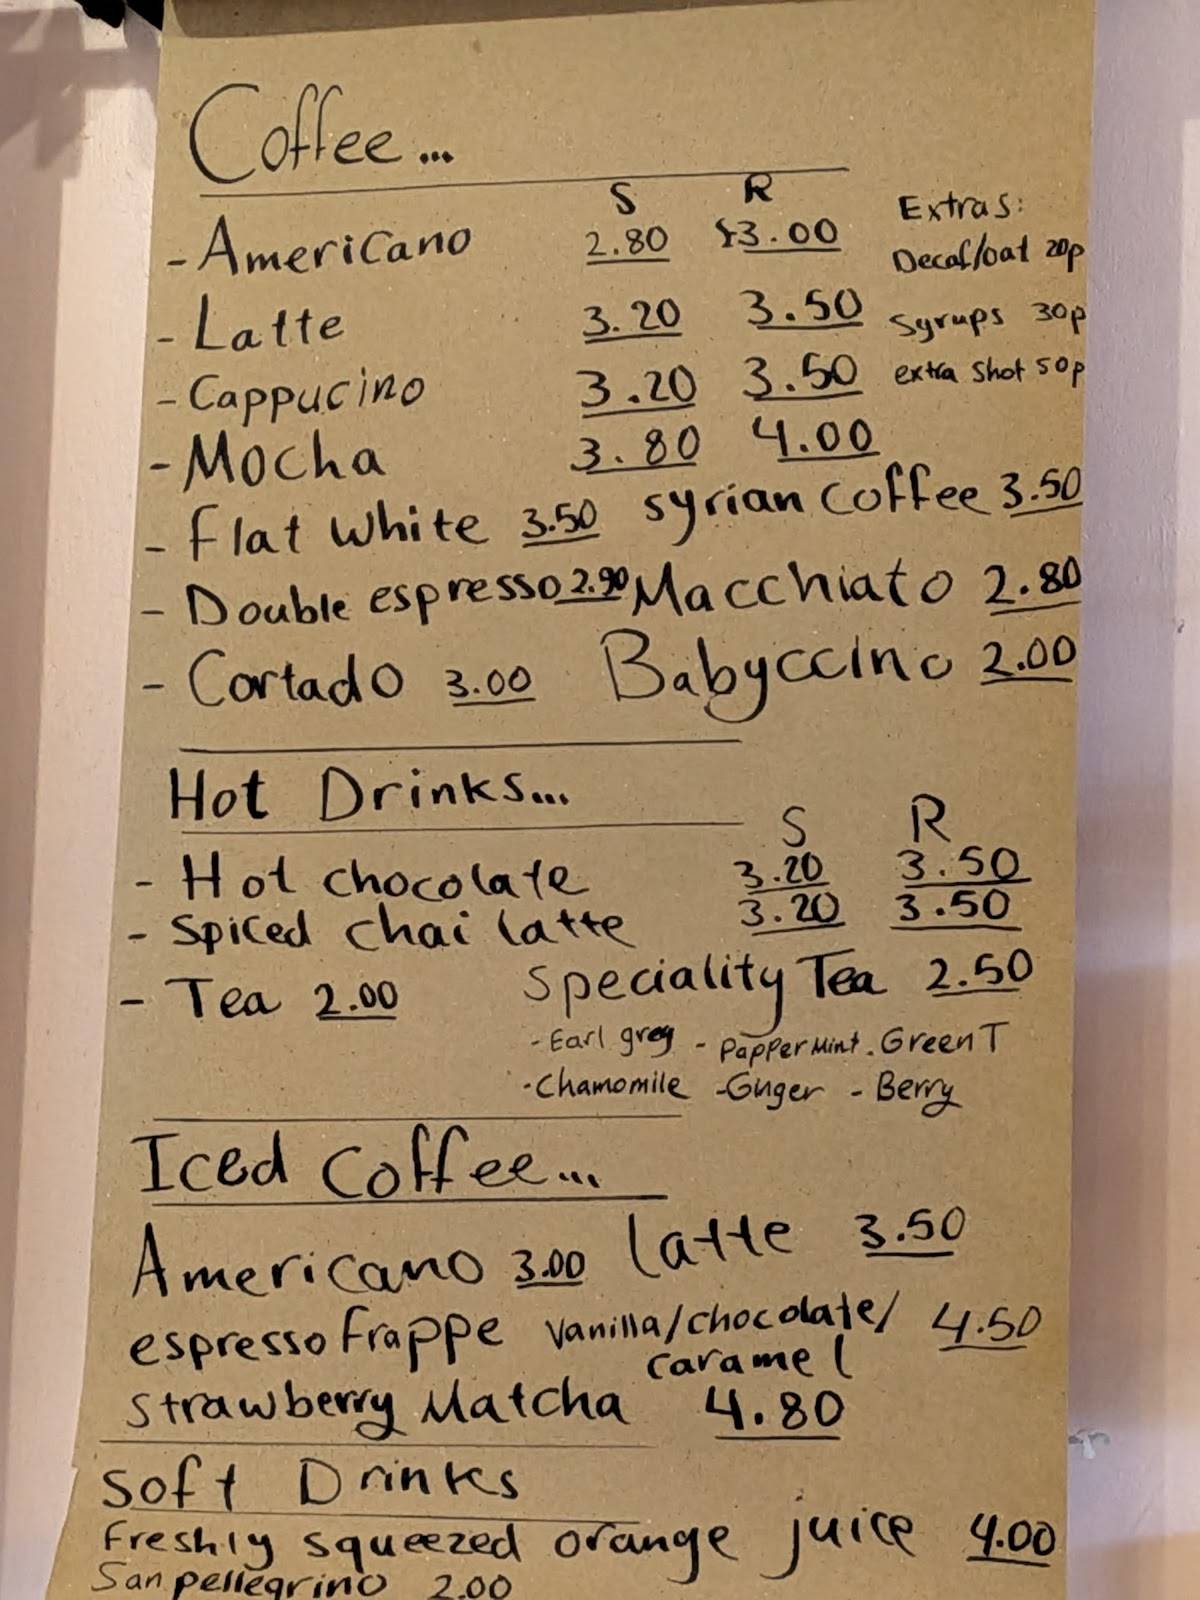 Coffee...
S R
- Americano 2.80 3.00
Extras:
Decaf/oat 20p
- Latte 3.20 3.50
Syrups 30p
- Cappucino 3.20 3.50
extra shot 50p
- Mocha 3.80 4.00
- Flat white 3.50 syrian coffee 3.50
- Double espresso 2.90 Macchiato 2.80
- Cortado 3.00 Babyccino 2.00
Hot Drinks...
S R
- Hot chocolate 3.20 3.50
- Spiced chai latte 3.20 3.50
- Tea 2.00 Speciality Tea 2.50
- Earl grey - Pappermint . Green T
- Chamomile - Ginger - Berry
Iced Coffee...
Americano 3.00 latte 3.50
espresso frappe vanilla/chocolate/ 4.50
caramel
Strawberry Matcha 4.80
Soft Drinks
Freshly squeezed orange juice 4.00
San pellegrino 2.00